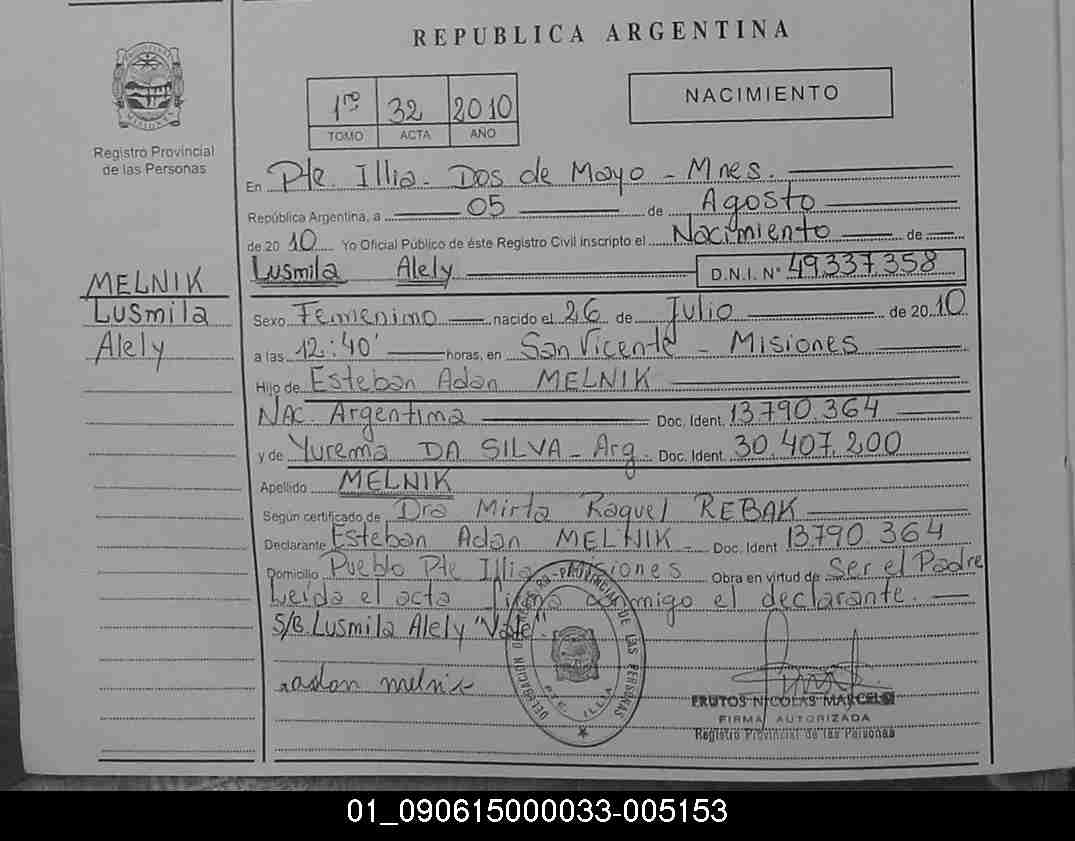 REPUBLICA ARGENTINA
1ro 32 2010
TOMO ACTA AÑO
NACIMIENTO
Registro Provincial
de las Personas
MELNIK
Lusmila
Alely
En Pte. Illia - Dos de Mayo - Mnes.
República Argentina, a 05 de Agosto
de 2010 Yo Oficial Público de éste Registro Civil inscripto el Nacimiento de
Lusmila Alely D.N.I. N° 49.337.358
Sexo Femenino nacido el 26 de Julio de 2010
a las 12:40' horas, en San Vicente - Misiones
Hijo de Esteban Adan MELNIK
NAC. Argentina Doc. Ident. 13.790.364
y de Yurema DA SILVA - Arg. Doc. Ident. 30.407.200
Apellido MELNIK
Según certificado de Dra Mirta Raquel REBAK
Declarante Esteban Adan MELNIK - Doc. Ident 13.790.364
Domicilio Pueblo Pte Illia Misiones Obra en virtud de Ser el Padre
Leida el acta firma conmigo el declarante.
S/B. Lusmila Alely "Vale".
adan melnik
DELEGACION DEL REGISTRO PROVINCIAL DE LAS PERSONAS
PTE. ILLIA
FRUTOS NICOLAS MARCELO
FIRMA AUTORIZADA
Registro Provincial de las Personas
01_090615000033-005153